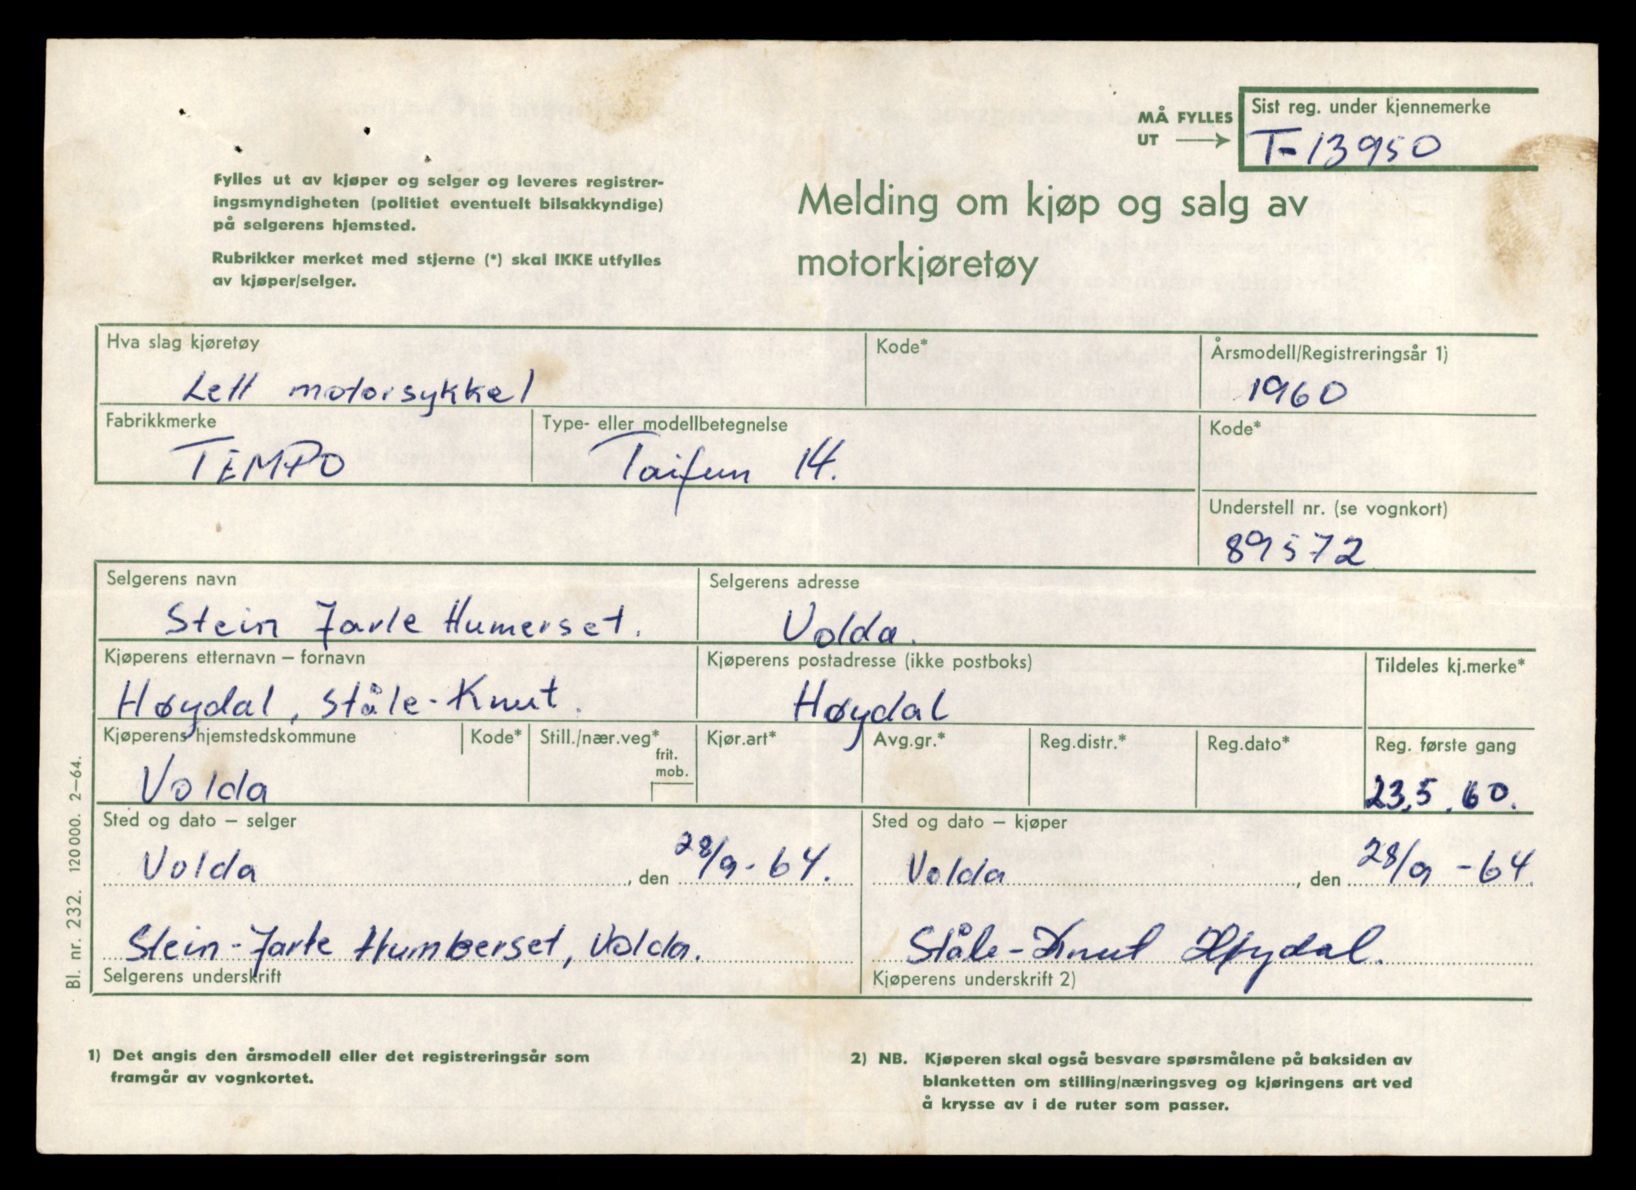 MÅ FYLLES
UT
Sist reg. under kjennemerke
T-13950
Fylles ut av kjøper og selger og leveres registrer-
ingsmyndigheten (politiet eventuelt bilsakkyndige)
på selgerens hjemsted.
Rubrikker merket med stjerne (*) skal IKKE utfylles
av kjøper/selger.
Melding om kjøp og salg av
motorkjøretøy
Hva slag kjøretøy
Lett motorsykkel
Kode*
Årsmodell/Registreringsår 1)
1960
Fabrikkmerke
TEMPO
Type- eller modellbetegnelse
Taifun 14.
Kode*
Understell nr. (se vognkort)
89572
Selgerens navn
Stein Jarle Humerset.
Selgerens adresse
Volda.
Kjøperens etternavn – fornavn
Høydal, Ståle-Knut.
Kjøperens postadresse (ikke postboks)
Høydal
Tildeles kj.merke*
Kjøperens hjemstedskommune
Volda
Kode*
Still./nær.veg*
frit.
mob.
Kjør.art*
Avg.gr.*
Reg.distr.*
Reg.dato*
Reg. første gang
23.5.60.
Sted og dato – selger
Volda, den 28/9-64.
Sted og dato – kjøper
Volda, den 28/9-64
Stein-Jarle Humberset, Volda.
Selgerens underskrift
Ståle-Knut Høydal.
Kjøperens underskrift 2)
Bl. nr. 232. 120000. 2–64.
1) Det angis den årsmodell eller det registreringsår som
framgår av vognkortet.
2) NB. Kjøperen skal også besvare spørsmålene på baksiden av
blanketten om stilling/næringsveg og kjøringens art ved
å krysse av i de ruter som passer.